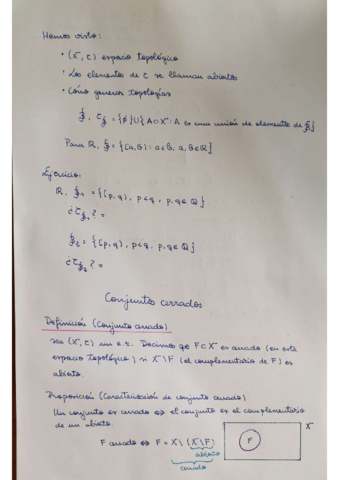 Hemos visto:
• (X, τ) espacio topológico
• Los elementos de τ se llaman abiertos
• Cómo generar topologías
ℬ, τ_ℬ = {∅} ∪ {A ⊂ X : A es una unión de elementos de ℬ}
Para ℝ, ℬ = {[a,b) : a<b, a,b∈ℝ}
Ejercicio:
ℝ, ℬ₁ = {(p,q), p<q, p,q∈ℚ}
¿τ_ℬ₁? =
ℬ₂ = {[p,q), p<q, p,q∈ℚ}
¿τ_ℬ₂? =
Conjuntos cerrados
Definición (Conjunto cerrado)
Sea (X, τ) un e.t. Decimos qe F⊂X es cerrado (en este
espacio topológico) si X\F (el complementario de F) es
abierto.
Proposición (Caracterización de conjunto cerrado)
Un conjunto es cerrado ⇔ el conjunto es el complementario
de un abierto.
X
F cerrado ⇔ F = X\(X\F)
F
abierto
cerrado